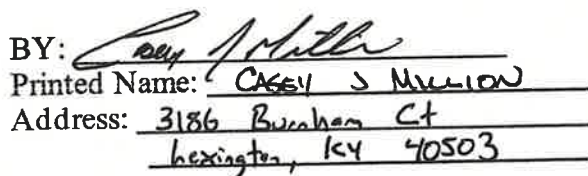 BY: Casey J Mill
Printed Name: CASEY J MILLION
Address: 3186 Burnham Ct
Lexington, KY 40503